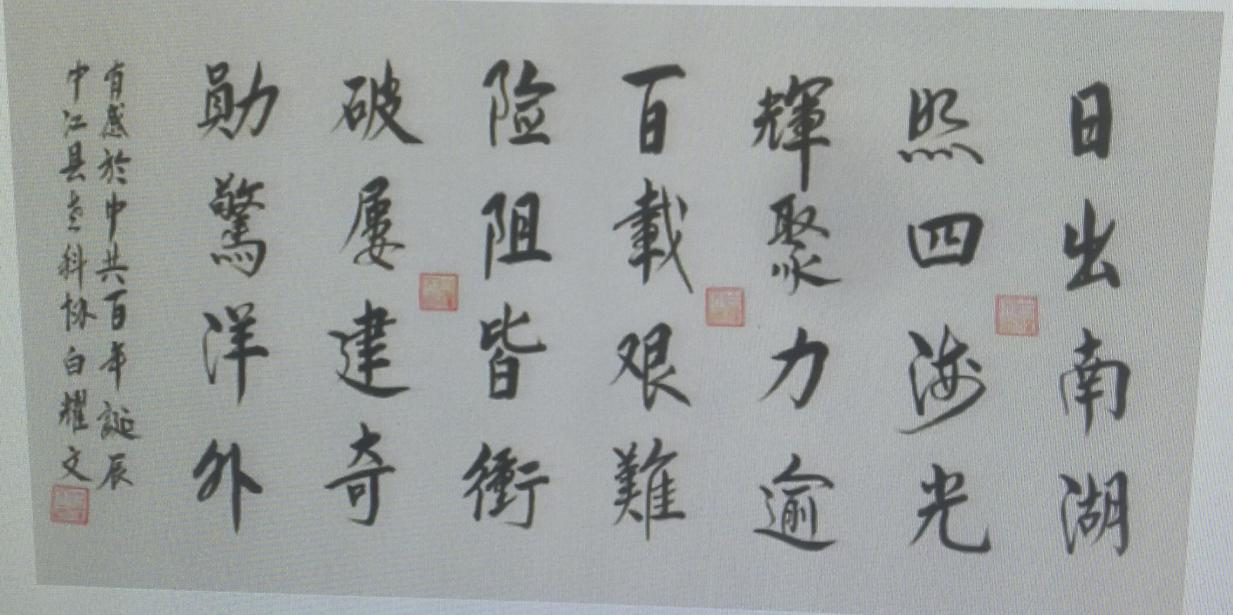 日出南湖
照四海光
輝聚力逾
百載艰難
险阻皆衝
破屡建奇
勛驚洋外
有感於中共百年誕辰
中江县老科协白耀文